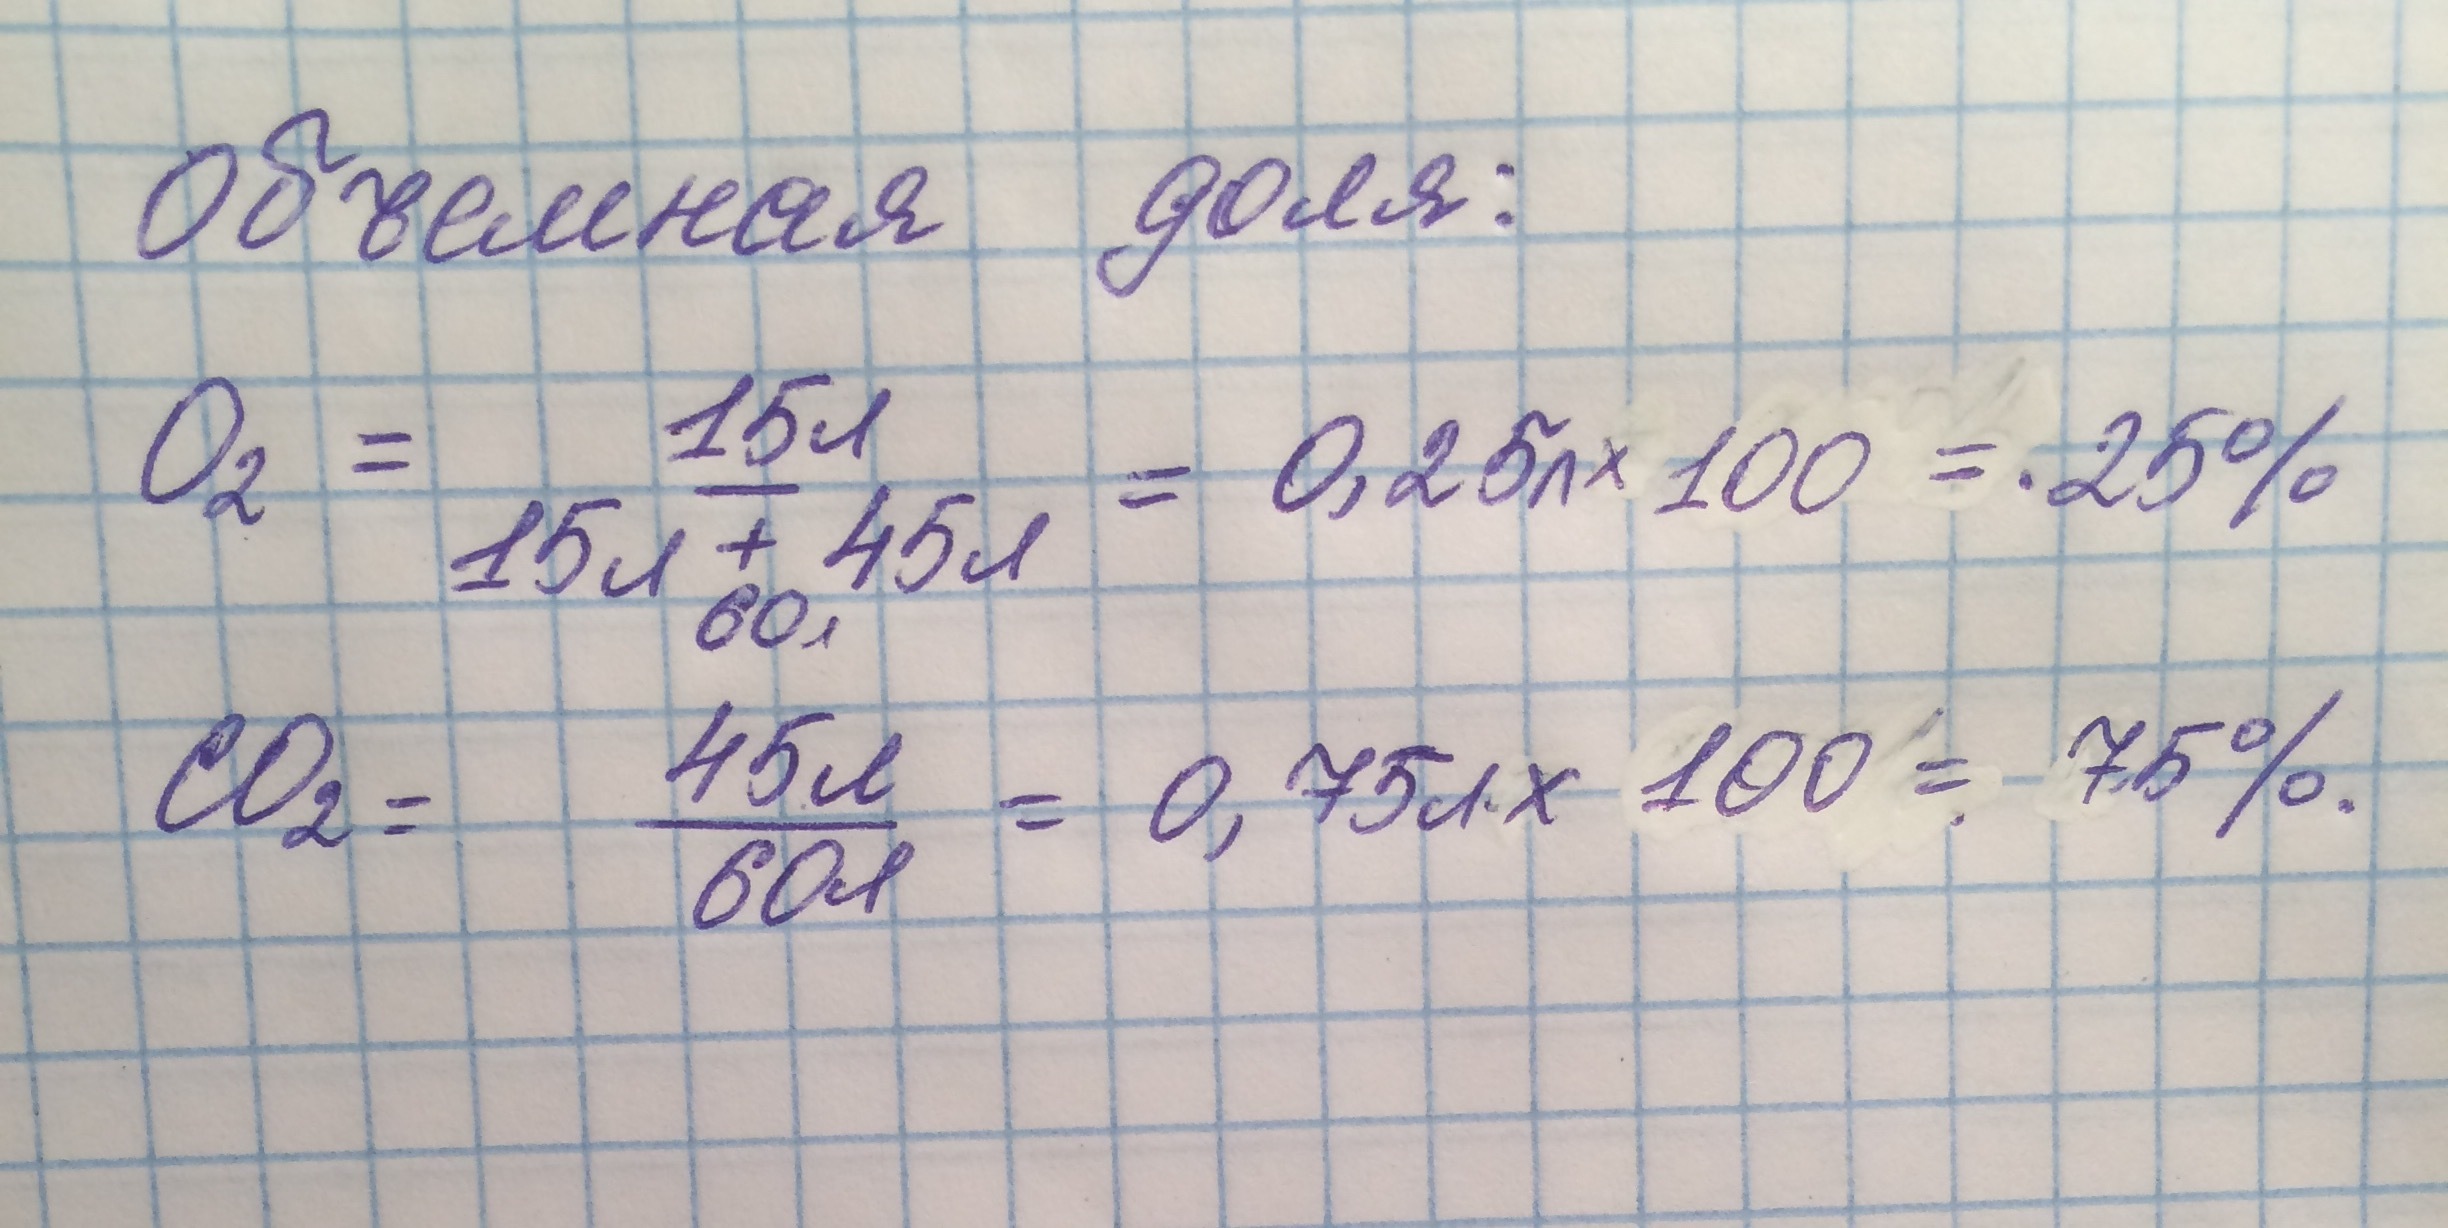 Объемная доля:
O₂ = 15л / 15л + 45л = 0,25л x 100 = . 25%
60л
CO₂ = 45л / 60л = 0,75л x 100 = 75%.